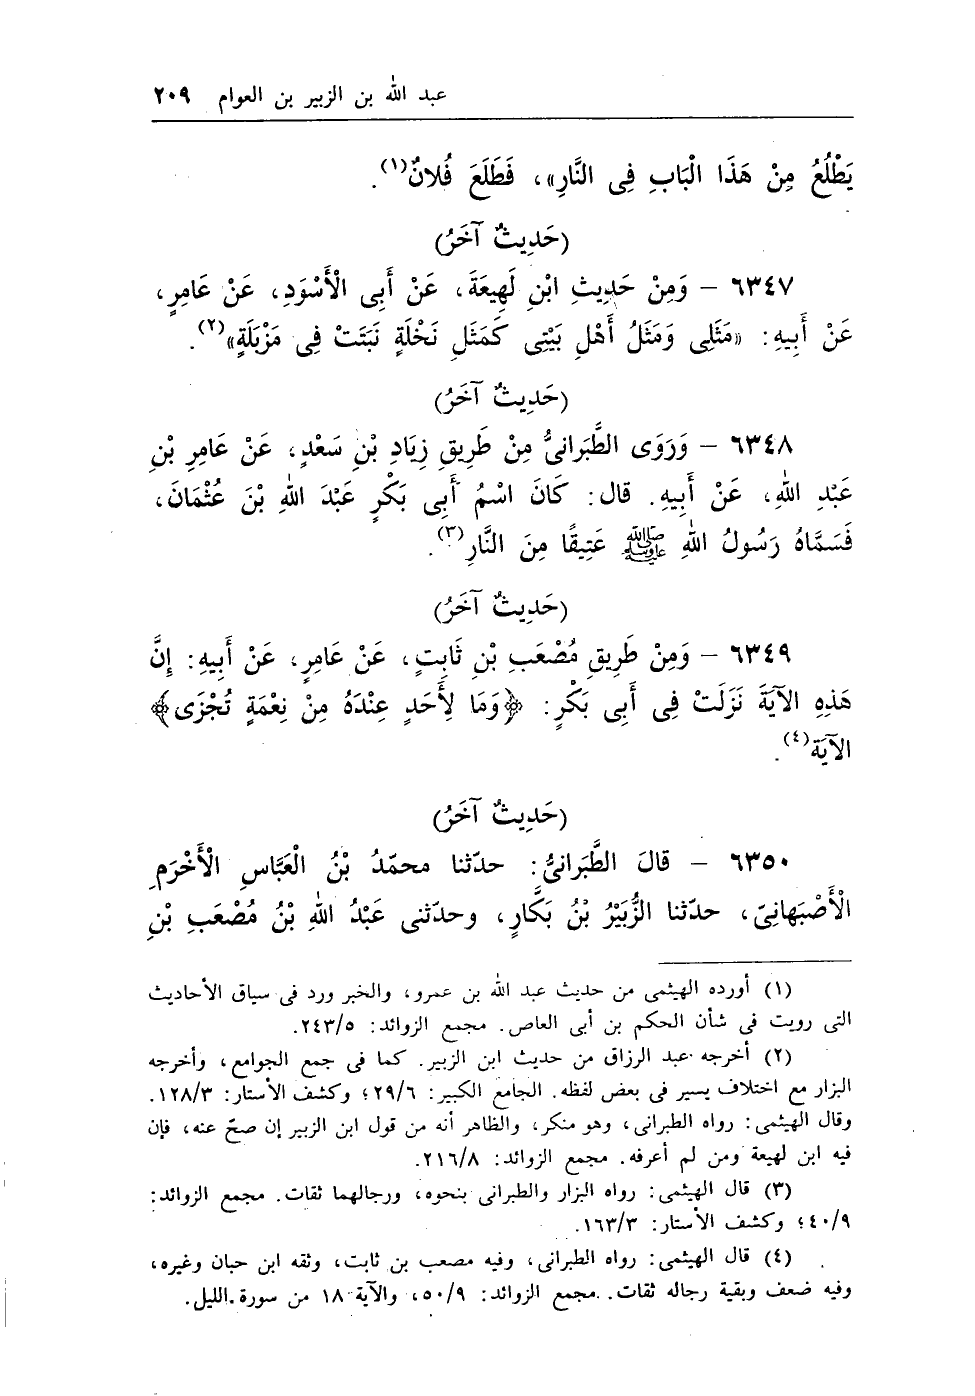 عبد الله بن الزبير بن العوام ٢٠٩
يَطْلُعُ مِنْ هَذَا الْبَابِ فِى النَّارِ»، فَطَلَعَ فُلانٌ(١).
(حَدِيثٌ آخَرُ)
٦٣٤٧ – وَمِنْ حَدِيثِ ابْنِ لَهِيعَةَ، عَنْ أَبِى الْأَسْوَدِ، عَنْ عَامِرٍ،
عَنْ أَبِيهِ: «مَثَلِى وَمَثَلُ أَهْلِ بَيْتِى كَمَثَلِ نَخْلَةٍ نَبَتَتْ فِى مَزْبَلَةٍ»(٢).
(حَدِيثٌ آخَرُ)
٦٣٤٨ – وَرَوَى الطَّبَرانىُّ مِنْ طَرِيقِ زِيَادِ بْنِ سَعْدٍ، عَنْ عَامِرِ بْنِ
عَبْدِ اللهِ، عَنْ أَبِيهِ. قال: كَانَ اسْمُ أَبِى بَكْرٍ عَبْدَ اللهِ بْنَ عُثْمَانَ،
فَسَمَّاهُ رَسُولُ اللهِ ﷺ عَتِيقًا مِنَ النَّارِ(٣).
(حَدِيثٌ آخَرُ)
٦٣٤٩ – وَمِنْ طَرِيقِ مُصْعَبِ بْنِ ثَابِتٍ، عَنْ عَامِرٍ، عَنْ أَبِيهِ: إِنَّ
هَذِهِ الآيَةَ نَزَلَتْ فِى أَبِى بَكْرٍ: ﴿وَمَا لِأَحَدٍ عِنْدَهُ مِنْ نِعْمَةٍ تُجْزَى﴾
الآيَة(٤).
(حَدِيثٌ آخَرُ)
٦٣٥٠ – قالَ الطَّبَرانىُّ: حدّثنا محمّدُ بْنُ الْعَبَّاسِ الْأَخْرَمِ
الْأَصْبَهانِىّ، حدّثنا الزُّبَيْرُ بْنُ بَكَّارٍ، وحدّثنى عَبْدُ اللهِ بْنُ مُصْعَبِ بْنِ
(١) أورده الهيثمى من حديث عبد الله بن عمرو، والخبر ورد فى سياق الأحاديث
التى رويت فى شأن الحكم بن أبى العاص. مجمع الزوائد: ٢٤٣/٥.
(٢) أخرجه عبد الرزاق من حديث ابن الزبير. كما فى جمع الجوامع، وأخرجه
البزار مع اختلاف يسير فى بعض لفظه. الجامع الكبير: ٢٩/٦؛ وكشف الأستار: ١٢٨/٣.
وقال الهيثمى: رواه الطبرانى، وهو منكر، والظاهر أنه من قول ابن الزبير إن صحّ عنه، فإن
فيه ابن لهيعة ومن لم أعرفه. مجمع الزوائد: ٢١٦/٨.
(٣) قال الهيثمى: رواه البزار والطبرانى بنحوه، ورجالهما ثقات. مجمع الزوائد:
٤٠/٩؛ وكشف الأستار: ١٦٣/٣.
(٤) قال الهيثمى: رواه الطبرانى، وفيه مصعب بن ثابت، وثقه ابن حبان وغيره،
وفيه ضعف وبقية رجاله ثقات. مجمع الزوائد: ٥٠/٩، والآية ١٨ من سورة الليل.